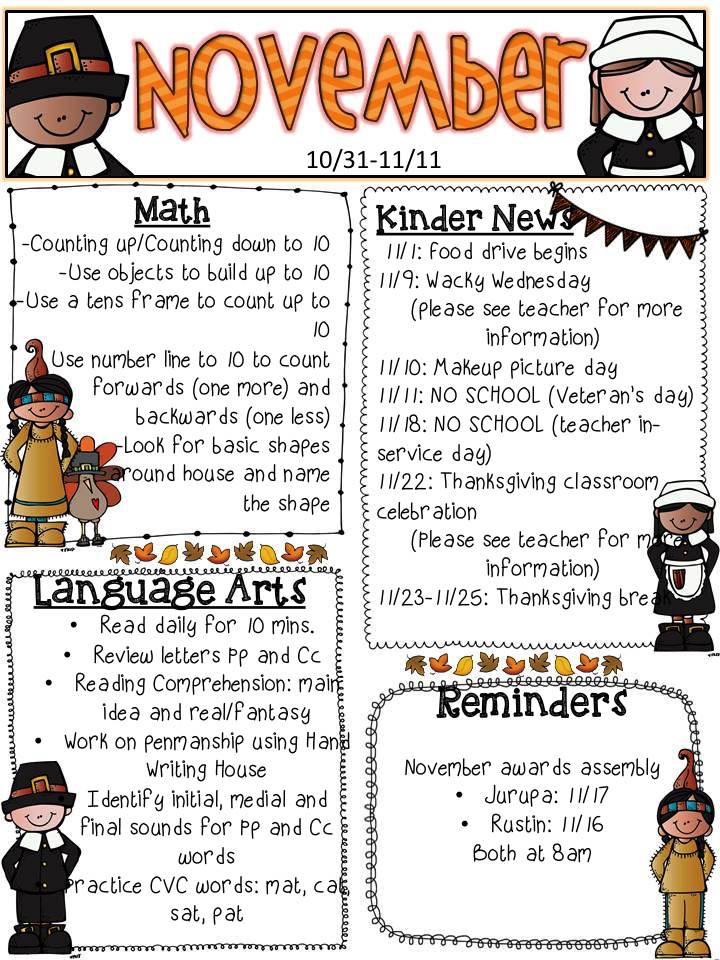 NOVEMBER
10/31-11/11
Math
-Counting up/Counting down to 10
-Use objects to build up to 10
-Use a tens frame to count up to
10
Use number line to 10 to count
forwards (one more) and
backwards (one less)
-Look for basic shapes
around house and name
the shape
Language Arts
• Read daily for 10 mins.
• Review letters Pp and Cc
• Reading Comprehension: main
idea and real/fantasy
• Work on penmanship using Hand
Writing House
Identify initial, medial and
final sounds for Pp and Cc
words
Practice CVC words: mat, cat,
sat, pat
Kinder News
11/1: Food drive begins
11/9: Wacky Wednesday
(Please see teacher for more
information)
11/10: Makeup picture day
11/11: NO SCHOOL (Veteran's day)
11/18: NO SCHOOL (teacher in-
service day)
11/22: Thanksgiving classroom
celebration
(Please see teacher for more
information)
11/23-11/25: Thanksgiving break
Reminders
November awards assembly
• Jurupa: 11/17
• Rustin: 11/16
Both at 8am